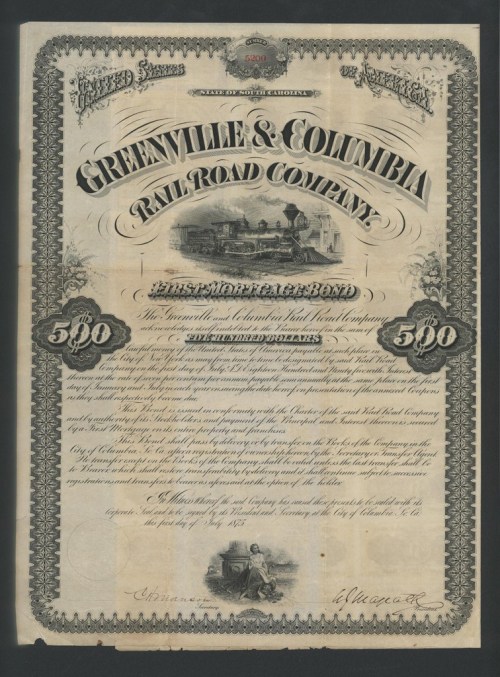 NUMBER
5200
UNITED STATES OF AMERICA
STATE OF SOUTH CAROLINA
GREENVILLE & COLUMBIA
RAIL ROAD COMPANY
FIRST MORTGAGE BOND
The Greenville and Columbia Rail Road Company
acknowledges itself indebted to the Bearer hereof in the sum of
$500 FIVE HUNDRED DOLLARS $500
lawful money of the United States of America payable at such place in
the City of New York as may from time to time be designated by said Rail Road
Company on the first day of July A.D. Eighteen Hundred and Ninety five with Interest
thereon at the rate of seven per centum per annum payable semi annually at the same place on the first
days of January and July in each year ensuing the date hereof on presentation of the annexed Coupons
as they shall respectively become due.
This Bond is issued in conformity with the Charter of the said Rail Road Company
and by authority of its Stockholders and payment of the Principal and Interest thereon is secured
by a First Mortgage on its entire property and franchises.
This Bond shall pass by delivery, or by transfer on the Books of the Company in the
City of Columbia So. Ca. after a registration of ownership hereon by the Secretary or Transfer Agent.
No transfer except on the Books of the Company shall be valid unless the last transfer shall be
to Bearer which shall restore transferability by delivery and it shall continue subject to successive
registrations and transfers to bearer as aforesaid at the option of the holder.
In Witness Whereof the said Company has caused these presents to be sealed with its
Corporate Seal and to be signed by its President and Secretary at the City of Columbia So. Ca.
this first day of July 1875
Secretary
President